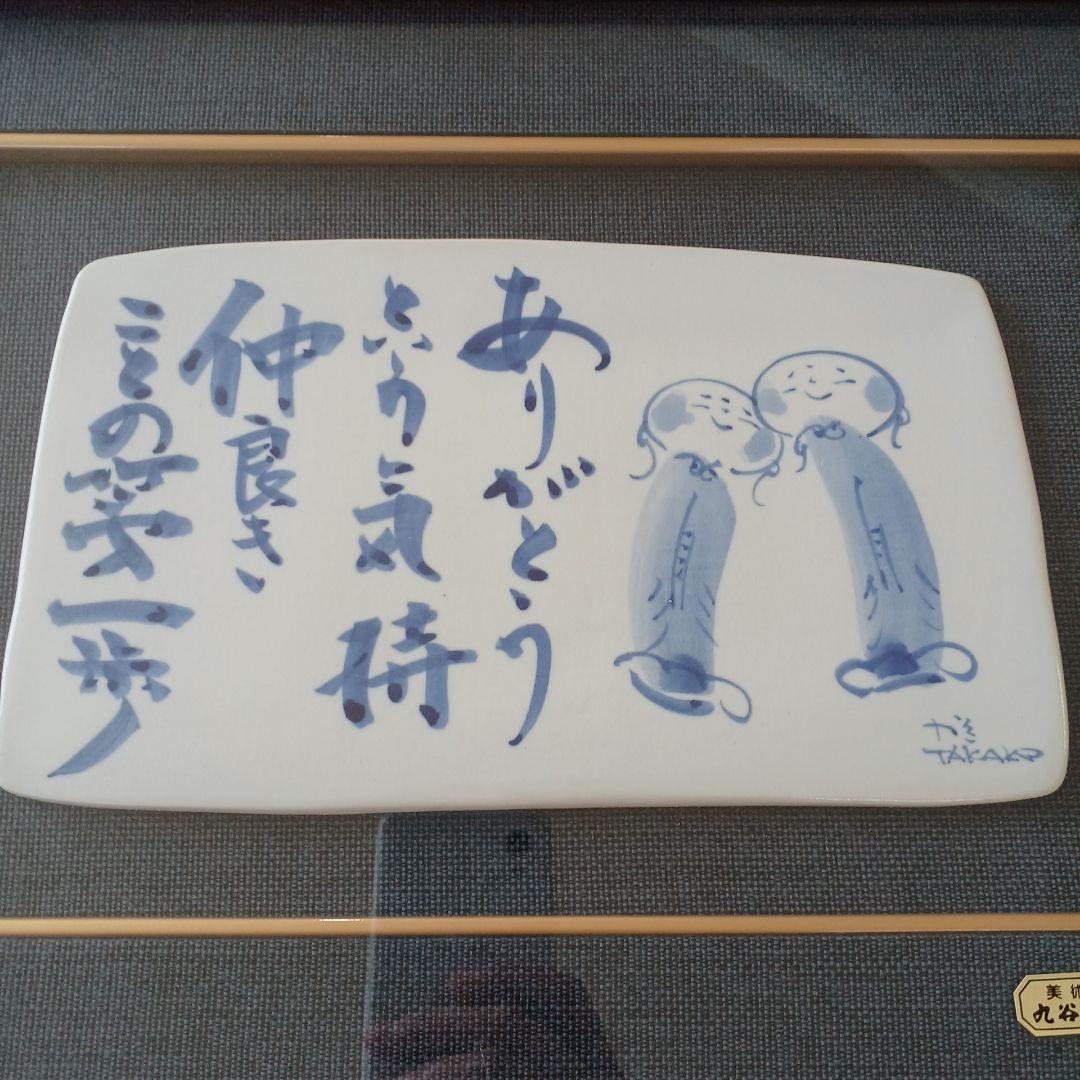 ありがとう
という気持
仲良き
ことの第一歩
TAKAKO
美術
九谷